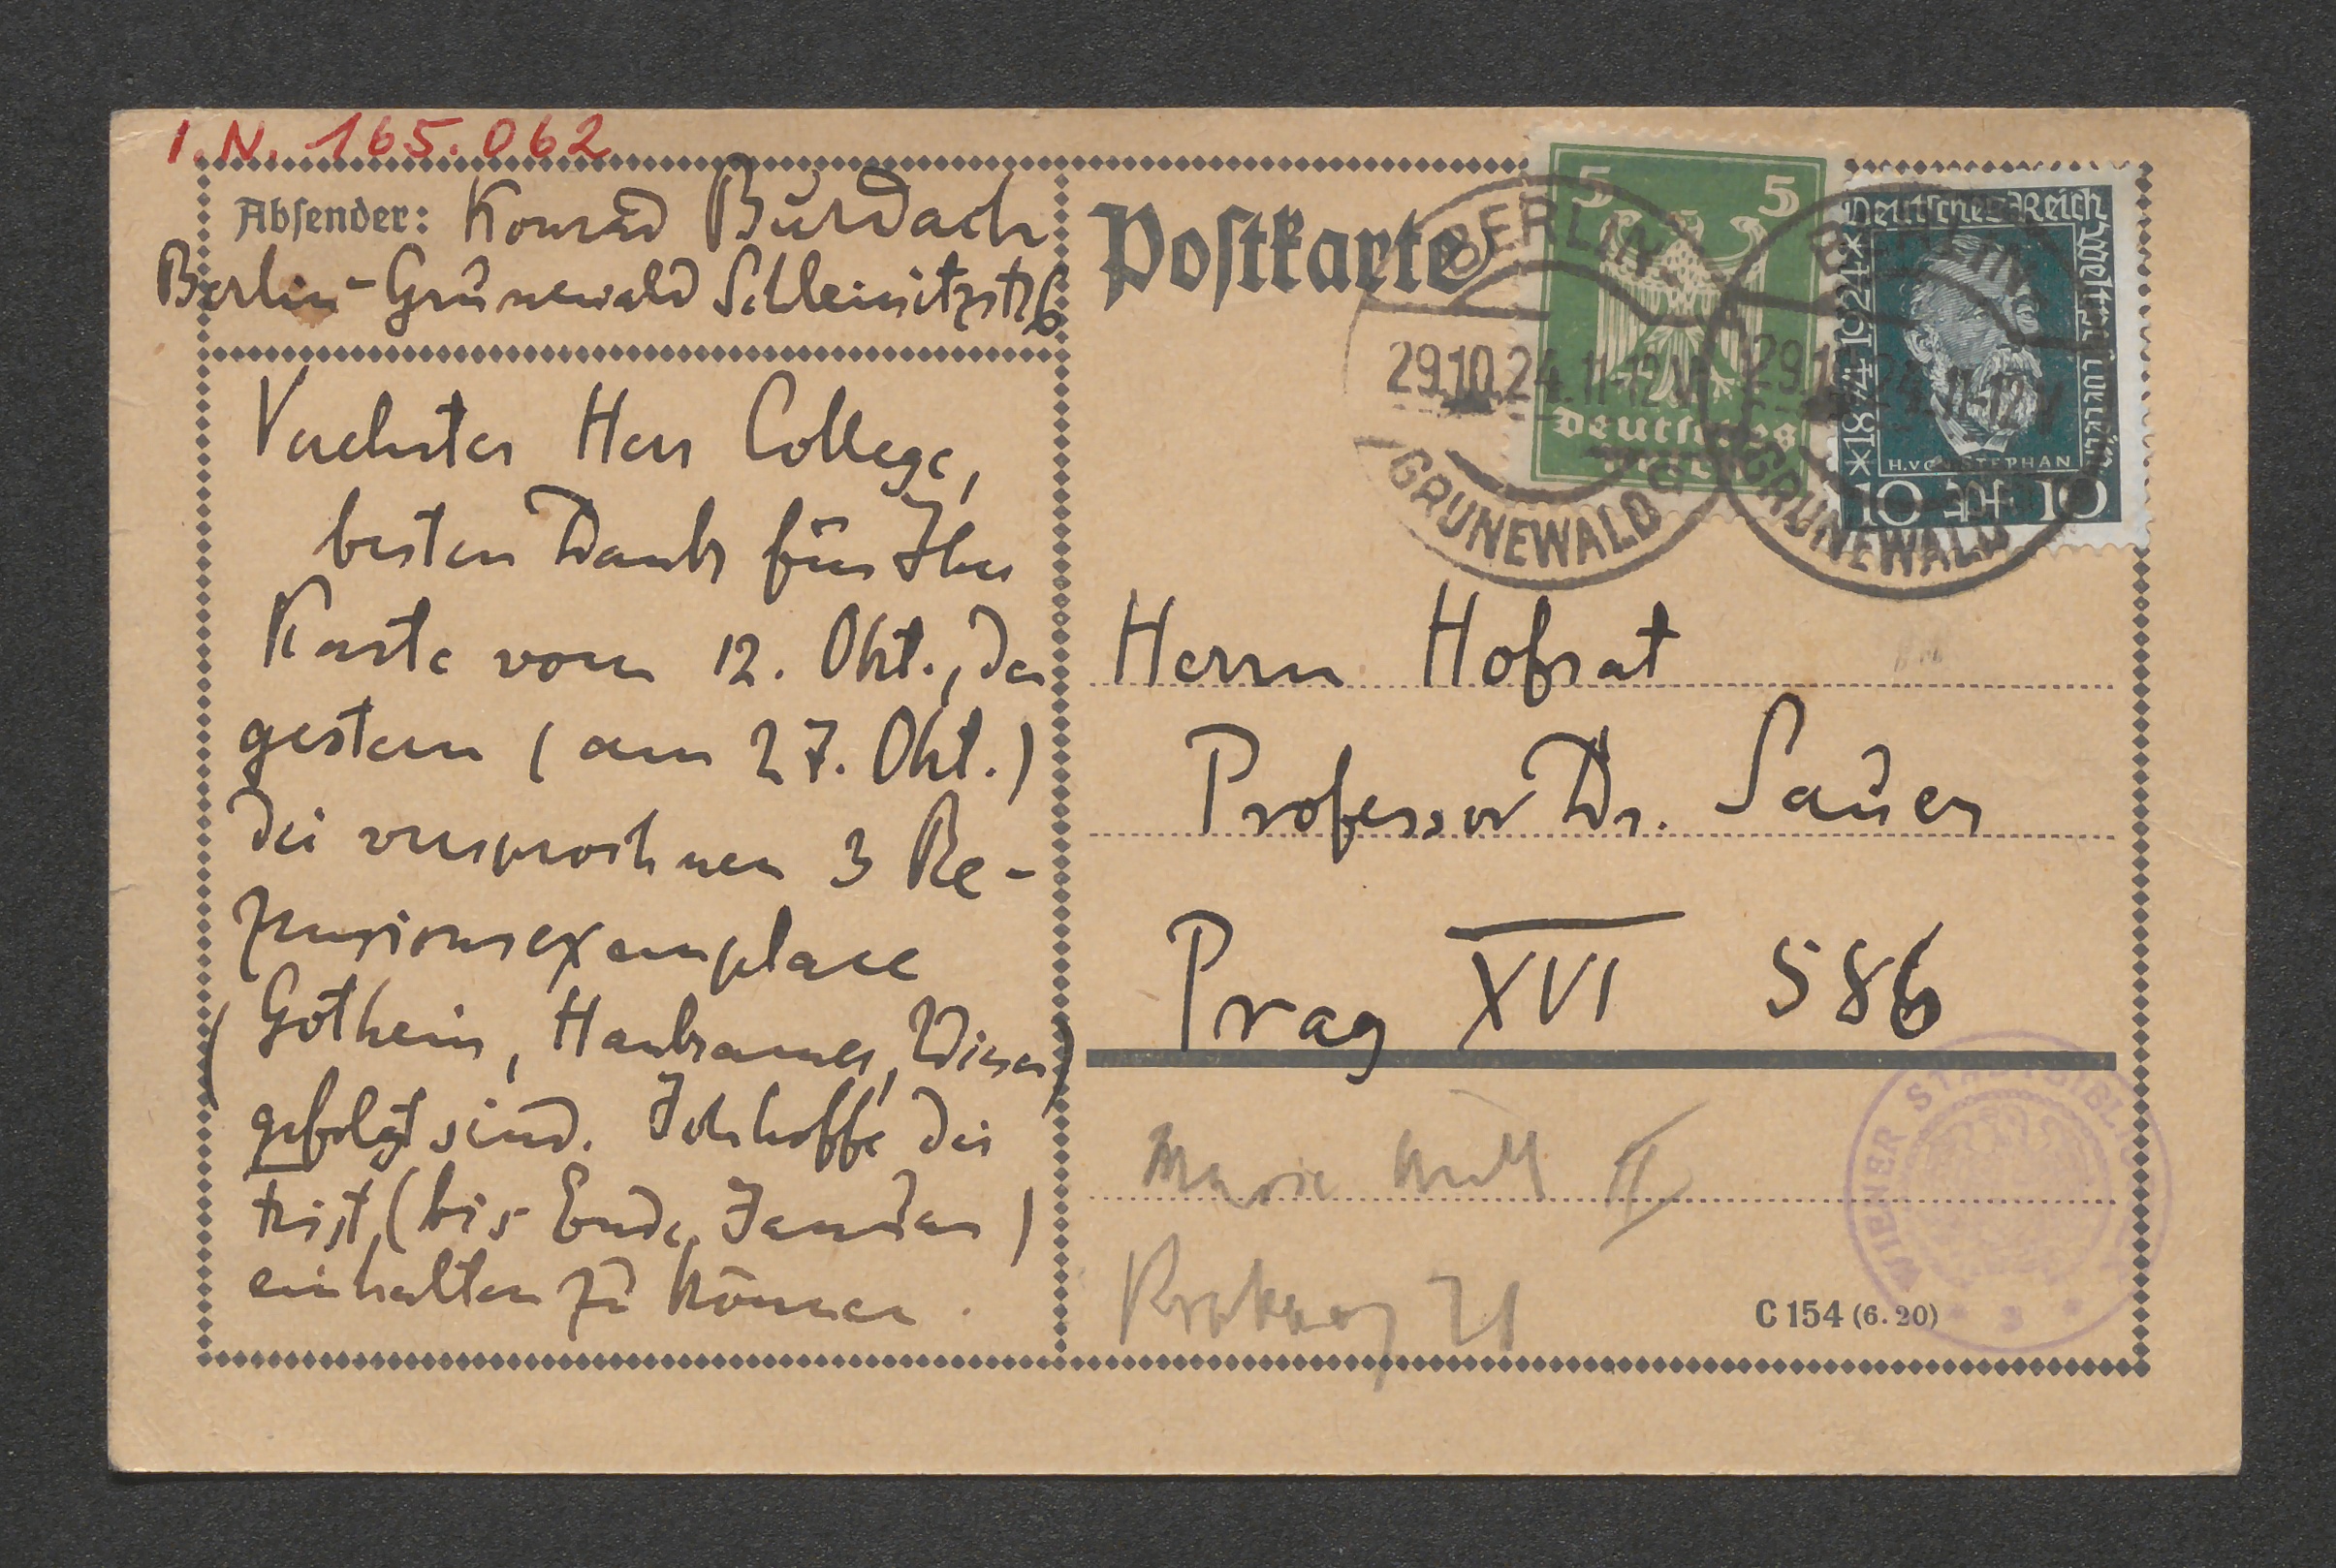 I.N. 165.062
Absender: Konrad Burdach
Berlin-Grunewald Schleinitzstr 6
Verehrter Herr College,
besten Dank für Ihre
Karte vom 12. Okt., der
gestern (am 27. Okt.)
die versprochnen 3 Re-
zensionsexemplare
(Gothein, Hankamer, Wieser)
gefolgt sind. Ich hoffe die
Frist (bis Ende Januar)
einhalten zu können.
Postkarte
5 5
Deutsches
Deutsches Reich
Weltpostverein
*1874*1924*
H. VON STEPHAN
10 Pf 10
BERLIN-
29.10.24.11-12V
GRUNEWALD
BERLIN-
29.10.24.11-12V
GRUNEWALD
Herrn Hofrat
Professor Dr. Sauer
Prag XVI 586
Marie II
21
WIENER STADTBIBLIOTHEK
C 154 (6. 20)